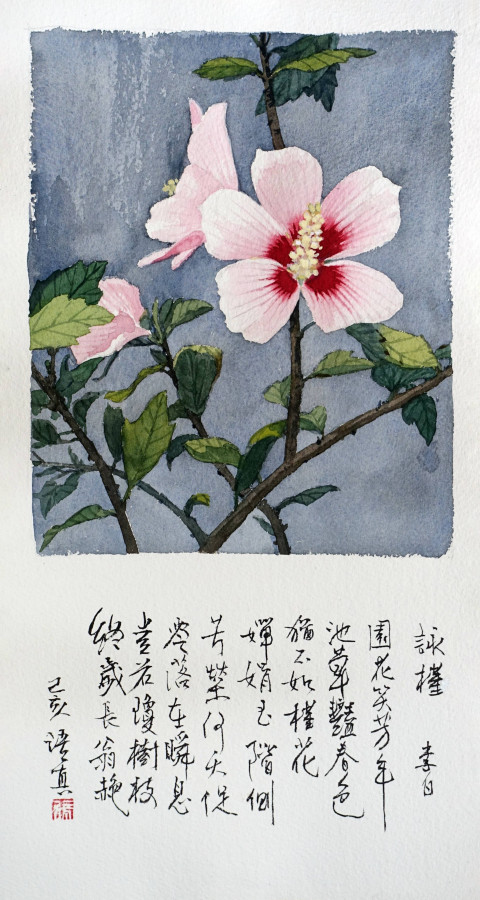 詠槿 李白
園花笑芳年
池草豔春色
猶不如槿花
嬋娟玉階側
芬榮何夭促
零落在瞬息
豈若瓊樹枝
終歲長翕赩
己亥 語真